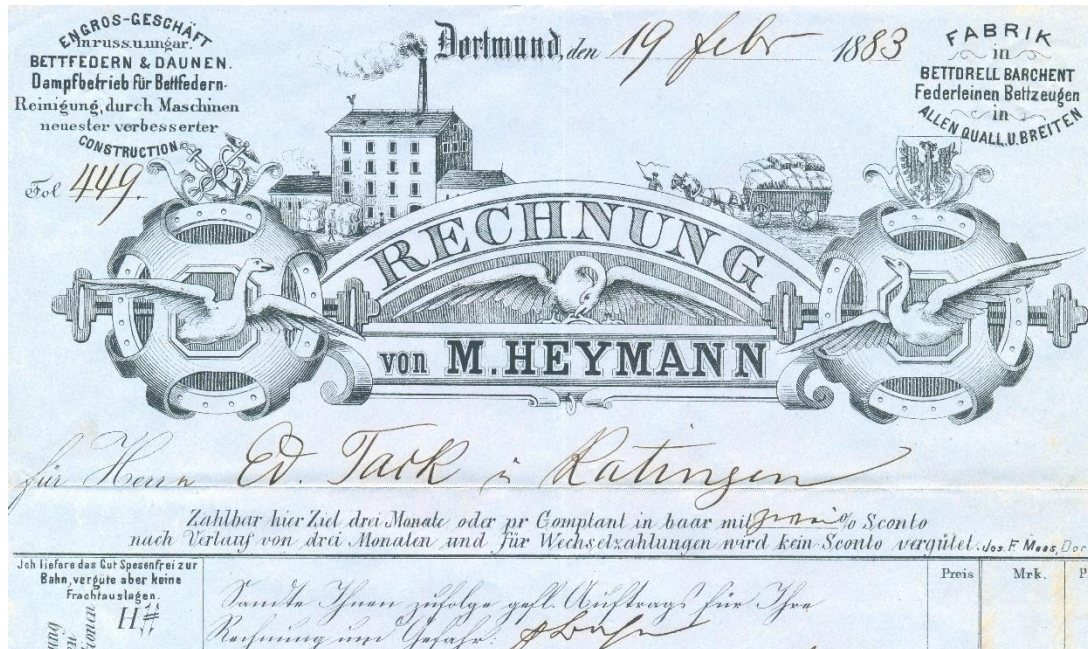 ENGROS-GESCHÄFT
In russ. u. ungar.
BETTFEDERN & DAUNEN.
Dampfbetrieb für Bettfedern-
Reinigung, durch Maschinen
neuester verbesserter
CONSTRUCTION
Fol 449.
Dortmund, den 19 Febr 1883
FABRIK
in
BETTDRELL BARCHENT
Federleinen Bettzeugen
in
ALLEN QUALL. U. BREITEN
RECHNUNG
von M. HEYMANN
für Herrn Ed. Tack in Ratingen
Zahlbar hier Ziel drei Monate oder pr Comptant in baar mit zwei % Sconto
nach Verlauf von drei Monaten und für Wechselzahlungen wird kein Sconto vergütet. Jos. F. Maas, Dor
Ich liefere das Gut Spesenfrei zur
Bahn, vergüte aber keine
Frachtauslagen.
H#
Sandte Ihnen zufolge gefl. Auftrags für Ihre
Rechnung und Gefahr: p Bahn
Preis Mrk. P